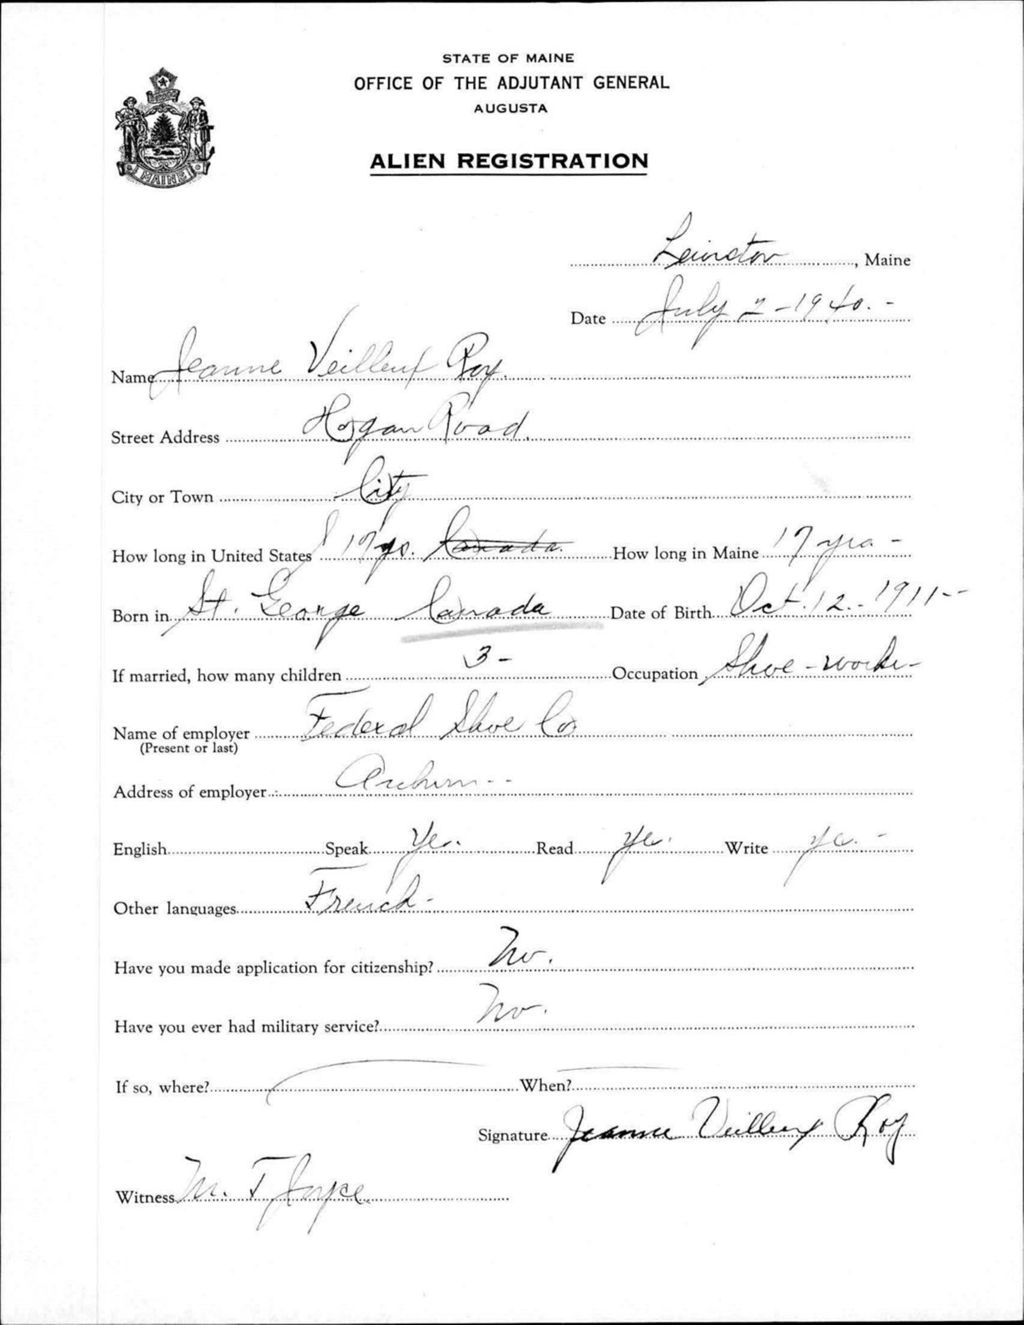 STATE OF MAINE
OFFICE OF THE ADJUTANT GENERAL
AUGUSTA
ALIEN REGISTRATION
MAINE
Lewiston, Maine
Date July 2 - 1940. -
Name Jeanne Veilleux Roy.
Street Address Hogan Road.
City or Town City
How long in United States 17 ys. Canada. How long in Maine 17 yrs -
Born in St. George Canada Date of Birth Oct. 12. - 1911 -
If married, how many children 3 - Occupation Shoe - worker -
Name of employer Federal Shoe Co
(Present or last)
Address of employer Auburn - -
English Speak Yes. Read Yes. Write yes. -
Other languages French -
Have you made application for citizenship? No.
Have you ever had military service? No.
If so, where? When?
Signature Jeanne Veilleux Roy
Witness M. T Joyce